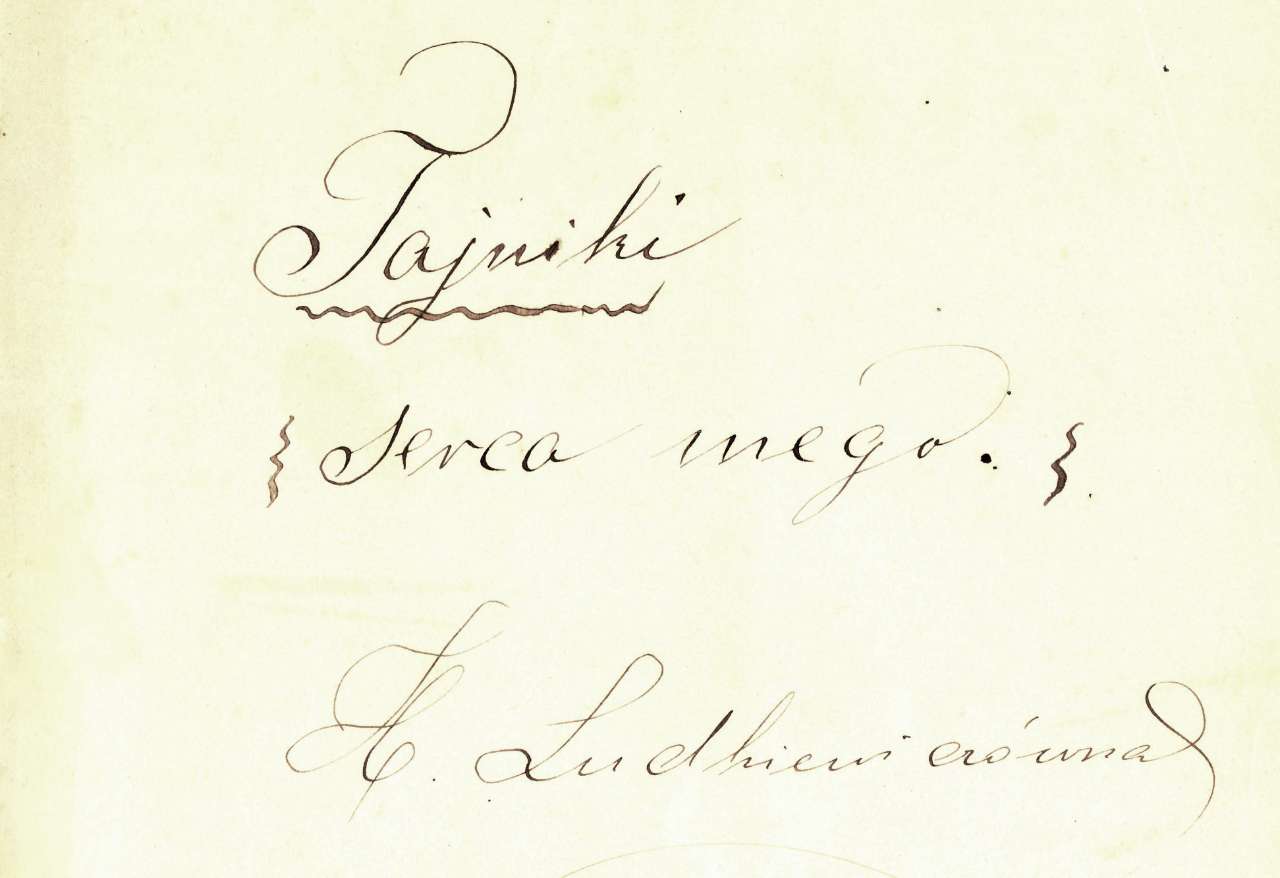 Tajniki
serca mego.
H. Ludkiewiczówna